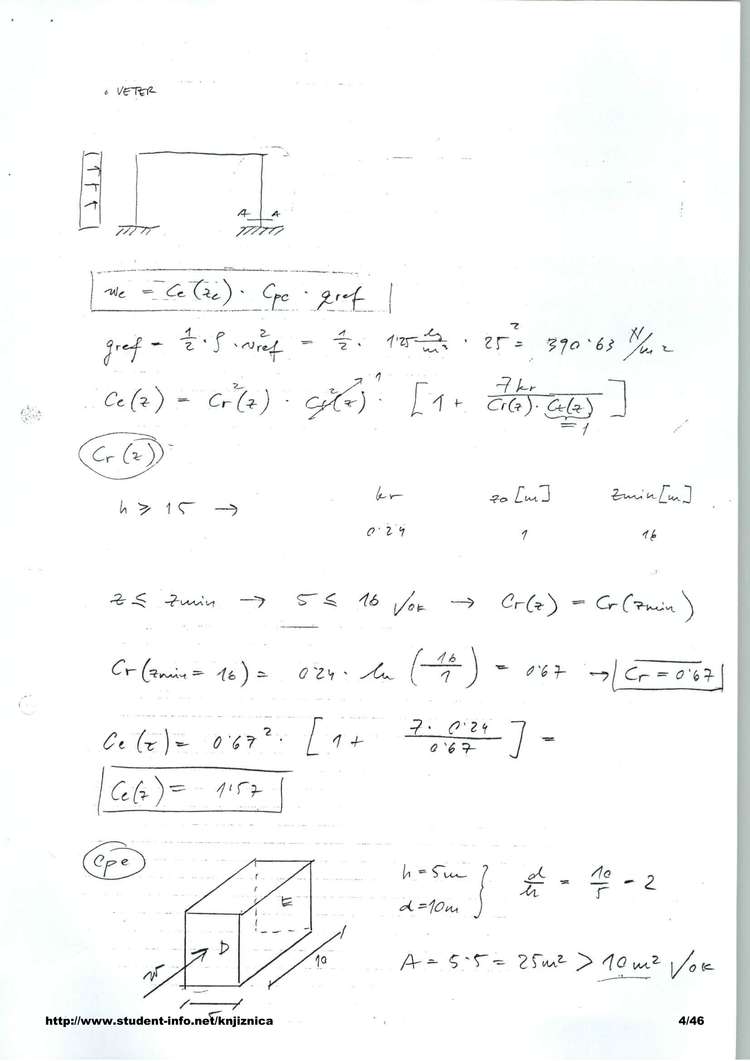 • VETER
A A
we = Ce(ze) · Cpe · qref
qref = 1/2 · ρ · vref² = 1/2 · 1.25 kg/m³ · 25² = 390.63 N/m²
Ce(z) = Cr²(z) · Ct²(z) 1 · [1 + 7kr / (Cr(z) · Ct(z))]
= 1
Cr(z)
kr z0 [m] zmin [m]
h ≥ 15 →
0.24 1 16
z ≤ zmin → 5 ≤ 16 √OK → Cr(z) = Cr(zmin)
Cr(zmin = 16) = 0.24 · ln (16/1) = 0.67 → Cr = 0.67
Ce(z) = 0.67² · [1 + 7 · 0.24 / 0.67] =
Ce(z) = 1.57
Cpe
h = 5m
d = 10m
d/h = 10/5 = 2
E
D
w
10
5
A = 5·5 = 25m² > 10m² √OK
http://www.student-info.net/knjiznica 4/46